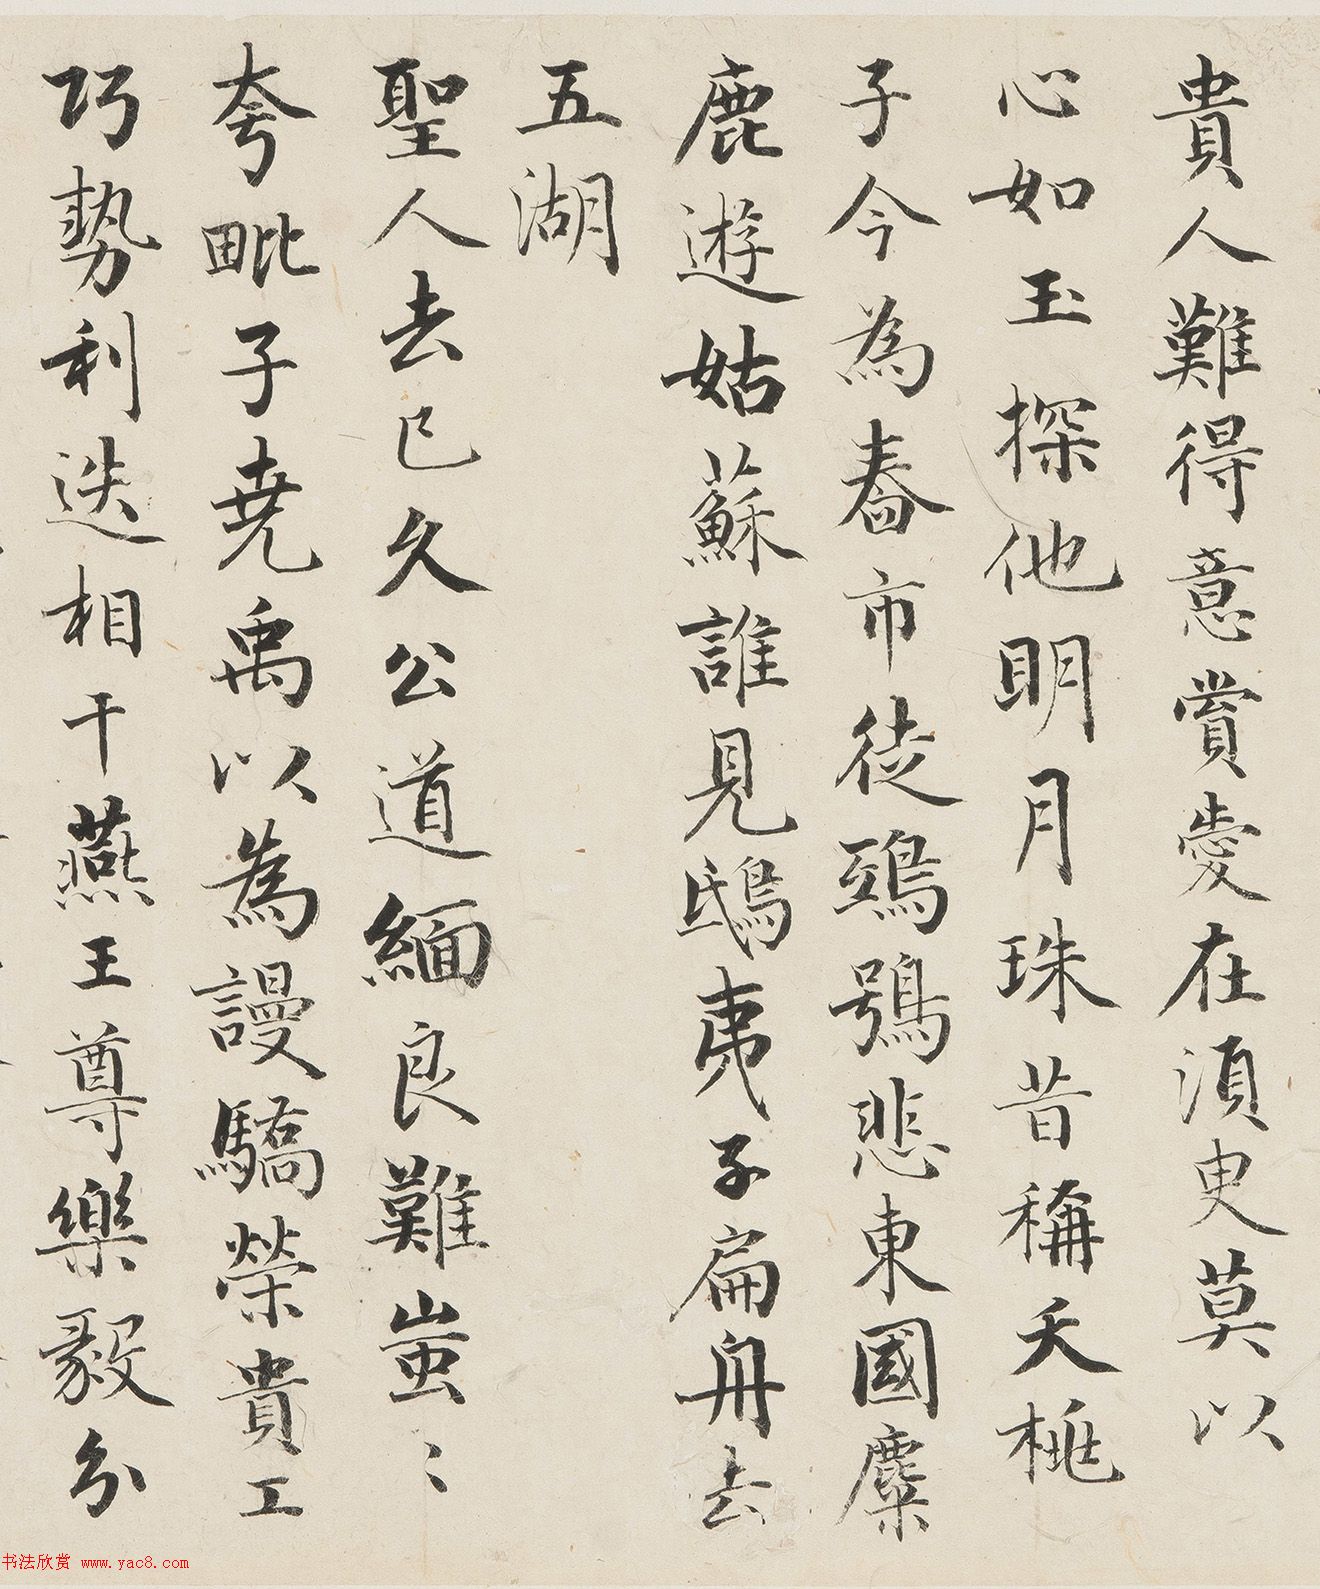 貴人難得意賞愛在須臾莫以
心如玉探他明月珠昔稱夭桃
子今為舂市徒鴟鴞悲東國麋
鹿遊姑蘇誰見鴟夷子扁舟去
五湖
聖人去已久公道緬良難蚩〻
夸毗子堯禹以為謾驕榮貴工
巧勢利迭相干燕王尊樂毅分
书法欣赏 www.yac8.com